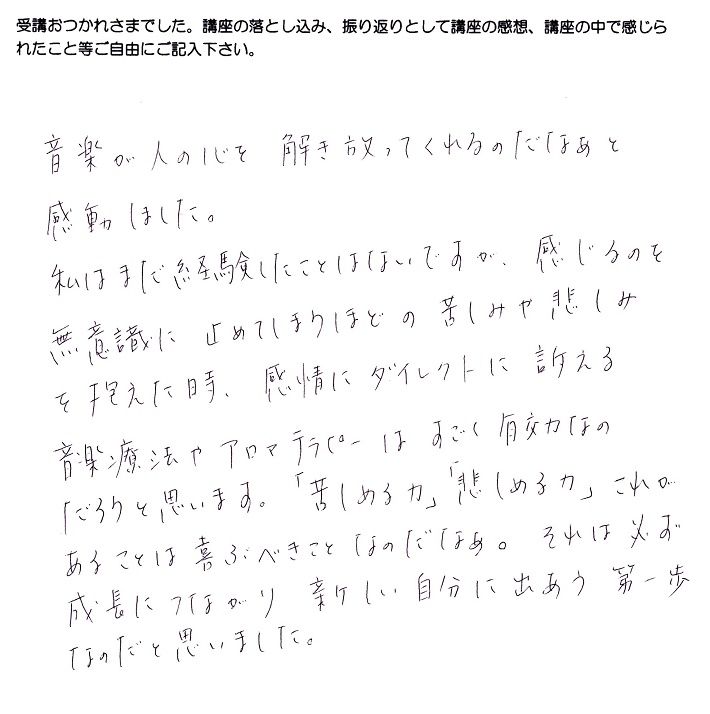 受講おつかれさまでした。講座の落とし込み、振り返りとして講座の感想、講座の中で感じら
れたこと等ご自由にご記入下さい。
音楽が人の心を 解き放ってくれるのだなぁと
感動しました。
私はまだ経験したことはないですが、感じるのを
無意識に 止めてしまうほどの 苦しみや悲しみ
を抱えた時、感情にダイレクトに訴える
音楽療法やアロマテラピーはすごく有効なの
だろうと思います。「苦しめる力」「悲しめる力」これが
あることは喜ぶべきことなのだなぁ。それは必ず
成長につながり 新しい自分に出あう 第一歩
なのだと思いました。